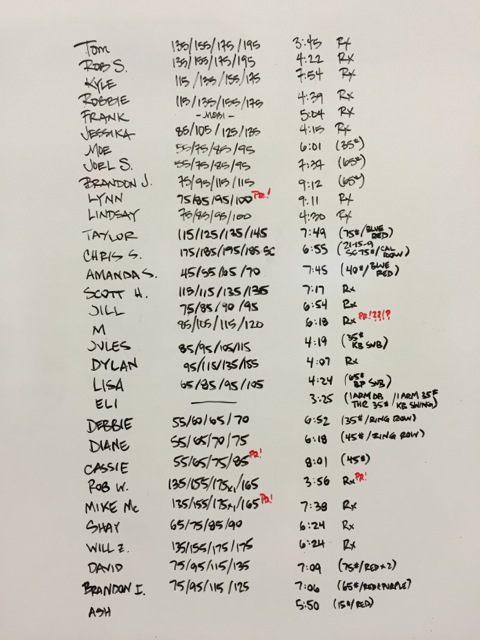 TOM 135/155/175/195 3:45 Rx
ROB S. 135/155/175/195 4:22 Rx
KYLE 115/135/155/175 7:54 Rx
ROBBIE 115/135/155/175 4:39 Rx
FRANK -MOBI- 5:04 Rx
JESSIKA 85/105/125/135 4:15 Rx
MOE 55/75/85/95 6:01 (35#)
JOEL S. 55/75/85/95 7:37 (65#)
BRANDON J. 75/95/115/115 9:12 (65#)
LYNN 75/85/95/100 PR! 9:11 Rx
LINDSAY 75/85/95/100 4:30 Rx
TAYLOR 115/125/135/145 7:49 (75#/BLUE RED)
CHRIS S. 175/185/195/185 SC 6:55 (21-15-9 SC 75#/CAL ROW)
AMANDA S. 45/55/65/70 7:45 (40#/BLUE RED)
SCOTT H. 115/115/135/135 7:17 Rx
JILL 75/85/90/95 6:54 Rx
M 85/105/115/120 6:18 Rx PR!??!?
JULES 85/95/105/115 4:19 (35# KB SUB)
DYLAN 95/115/135/155 4:07 Rx
LISA 65/85/95/105 4:24 (65# BP SUB)
ELI 3:25 (1 ARM DB THR 35# / 1 ARM 35# KB SWING)
DEBBIE 55/60/65/70 6:52 (35#/RING ROW)
DIANE 55/65/70/75 6:18 (45#/RING ROW)
CASSIE 55/65/75/85 PR! 8:01 (45#)
ROB W. 135/155/175x1/165 3:56 Rx PR!
MIKE MC 135/155/175x1/165 PR! 7:38 Rx
SHAY 65/75/85/90 6:24 Rx
WILL Z. 135/155/175/175 6:24 Rx
DAVID 75/95/115/135 7:09 (75#/RED x 2)
BRANDON I. 75/95/115/125 7:06 (65#/RED+PURPLE)
ASH 5:50 (15#/RED)